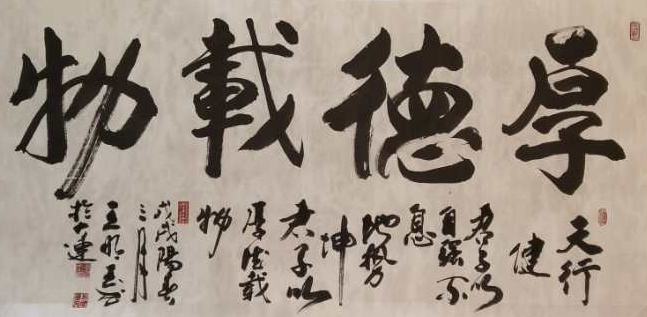 厚德載物
天行
健
君子以
自强不
息
地势
坤
君子以
厚德载
物
戊戌陽春
三月
王明
於大連